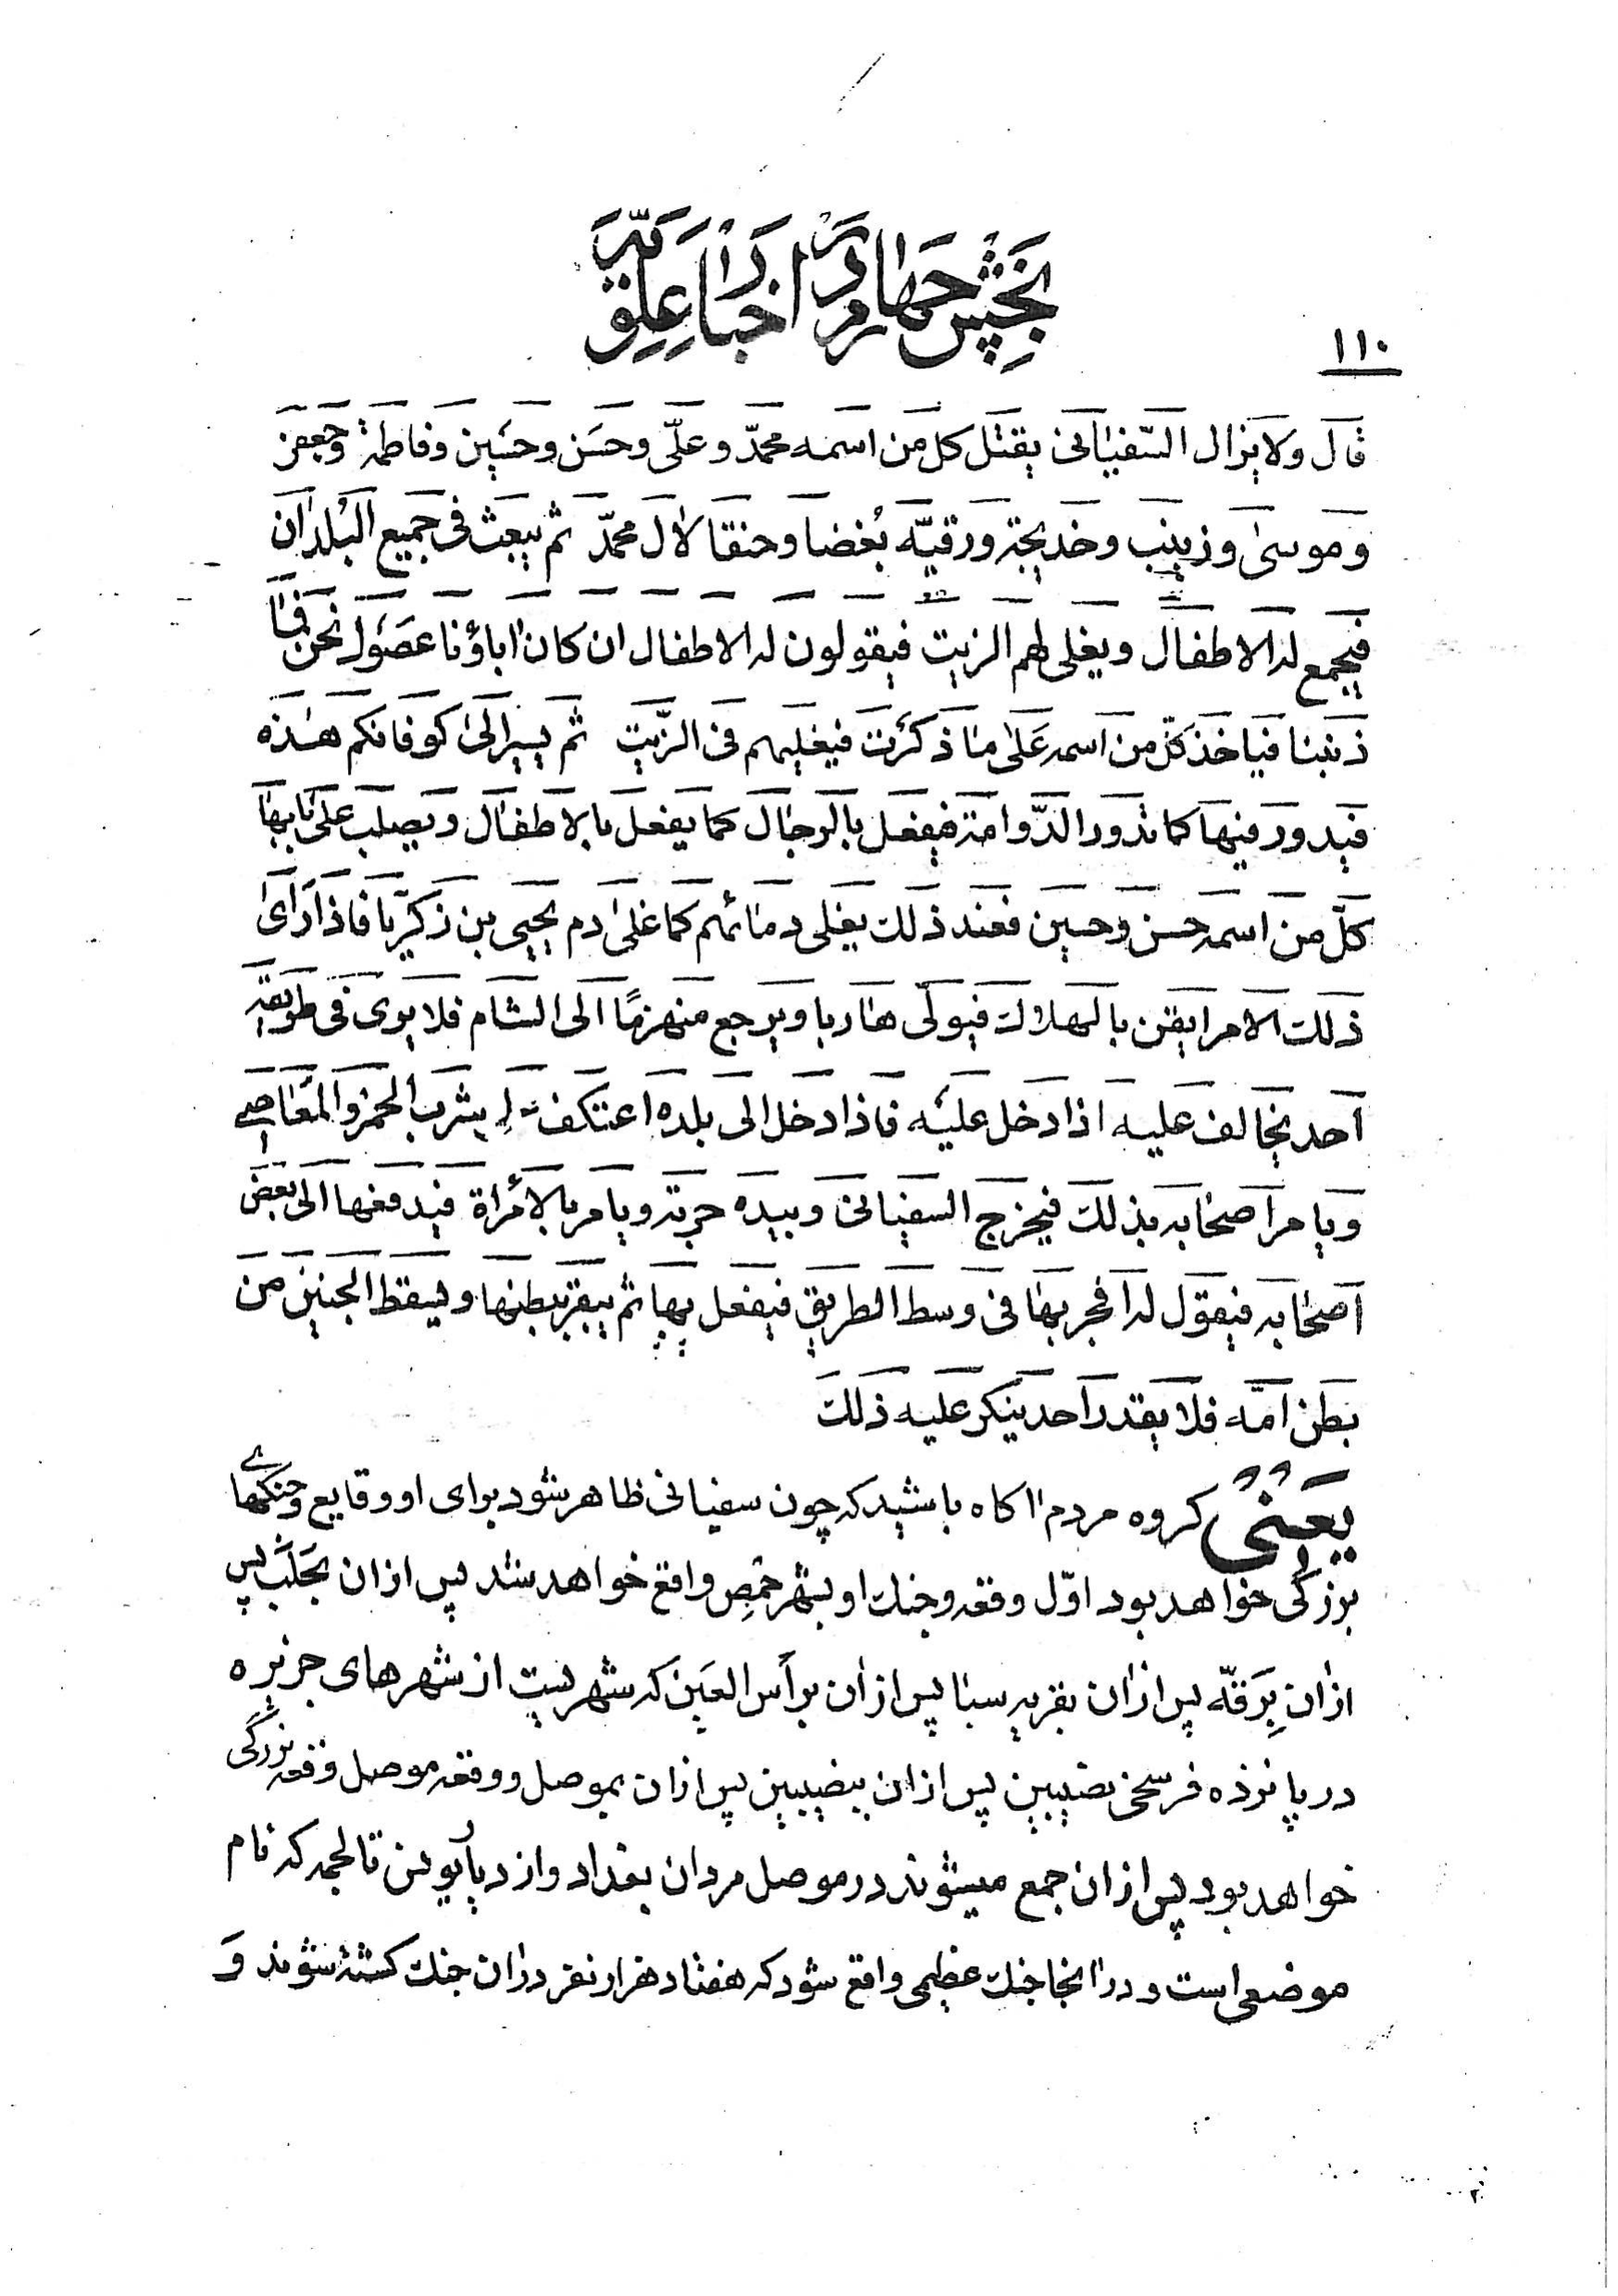 بخش چهارم در اخبار علویه
۱۱۰
قال ولا یزال السّفیانی یقتل کل من اسمه محمّد و علّی و حسَن و حسَین و فاطمة وجعفر
و موسیٰ و زینب و خدیجة و رقیّه بُغضا و حنقا لاٰل محمّد ثم یبعث فی جمیع البُلدان
فیجمع له الاطفال و یغلی لهم الزیت فیقولون له الاطفال ان کان اٰباؤنا عصَوك نحن فما
ذنبنا فیاخذ کلّ من اسمه عَلیٰ ما ذکرت فیغلیهم فی الزّیت ثم یسیر الیٰ کوفانکم هٰذه
فیدور فیها کما تدور الدّوامة فیفعل بالرجال کما یفعل بالاطفال و یصلب علیٰ بابها
کلّ من اسمه حسن و حسین فعند ذلك یغلی دمائهم کما غلیٰ دم یحیی بن زکریّا فاذا رایٰ
ذلك الامر ایقن بالهلاك فیولّی هاربا و یرجع منهزمًا الی الشام فلا یری فی طریقه
احد یخالف علیه اذا دخل علیَه فاذا دخل الی بلده اعتکف لـ یشرب الخمر و المعَاصے
و یامر اصحابه بذلك فیخرج السفیانی و بیده حربة و یامر بالامرأة فیدفعها الی بعض
اصحابه فیقول له افجر بها فی وسط الطریق فیفعل بها ثم یبقر ببطنها و یسقط الجنین من
بطن امّه فلا یقدر احد ینکر علیه ذلك
یَعنی کروه مردم اکاه باشید که چون سفیانی ظاهر شود برای او وقایع و جنکهاے
بزرکی خواهد بود اوّل وقعه و جنك او بشهر حمص واقع خواهد شد پس ازان بحَلَب پس
ازان بِرَقّه پس ازان بقریه سبا پس ازان برأس العَین که شهریست از شهرهای جزیره
در پانزده فرسخی نصیبین پس ازان بنصیبین پس ازان بموصل و وقعه موصل وقعه بزرگی
خواهد بود پس ازان جمع میشوند در موصل مردان بغداد و از دیار یونس تا لجمه که نام
موضعی است و در انجا جنك عظیمی واقع شود که هفتاد هزار نفر دران جنك کشته شوند وَ